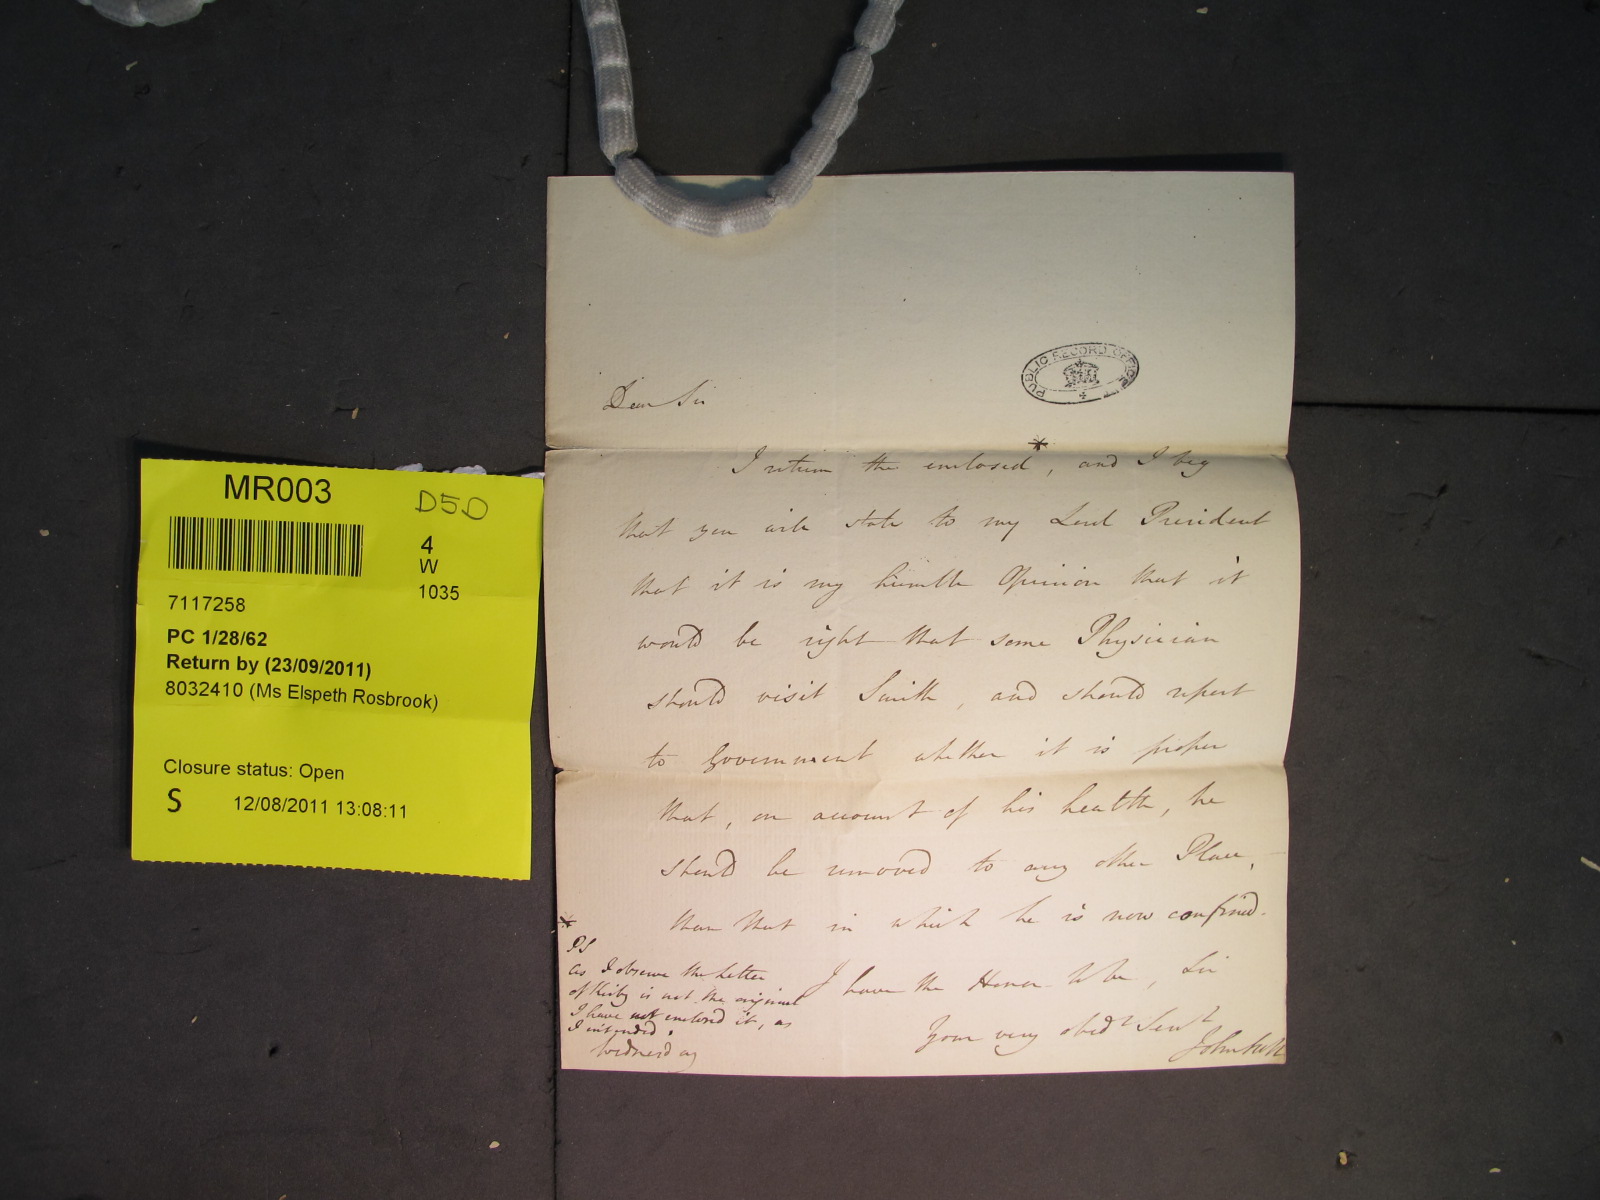 MR003
D5D
4
W
1035
7117258
PC 1/28/62
Return by (23/09/2011)
8032410 (Ms Elspeth Rosbrook)
Closure status: Open
S 12/08/2011 13:08:11
PUBLIC RECORD OFFICE
Dear Sir
*
I return the enclosed, and I beg
that you will state to my Lord President
that it is my humble Opinion that it
would be right that some Physician
should visit Smith, and should report
to Government whether it is proper
that, on account of his health, he
should be removed to any other Place,
than that in which he is now confined.
I have the Honor to be, Sir
Your very obedt Servt
John
*
PS
as I observe the Letter
of Kirby is not the original
I have not enclosed it, as
I intended.
Wednesday